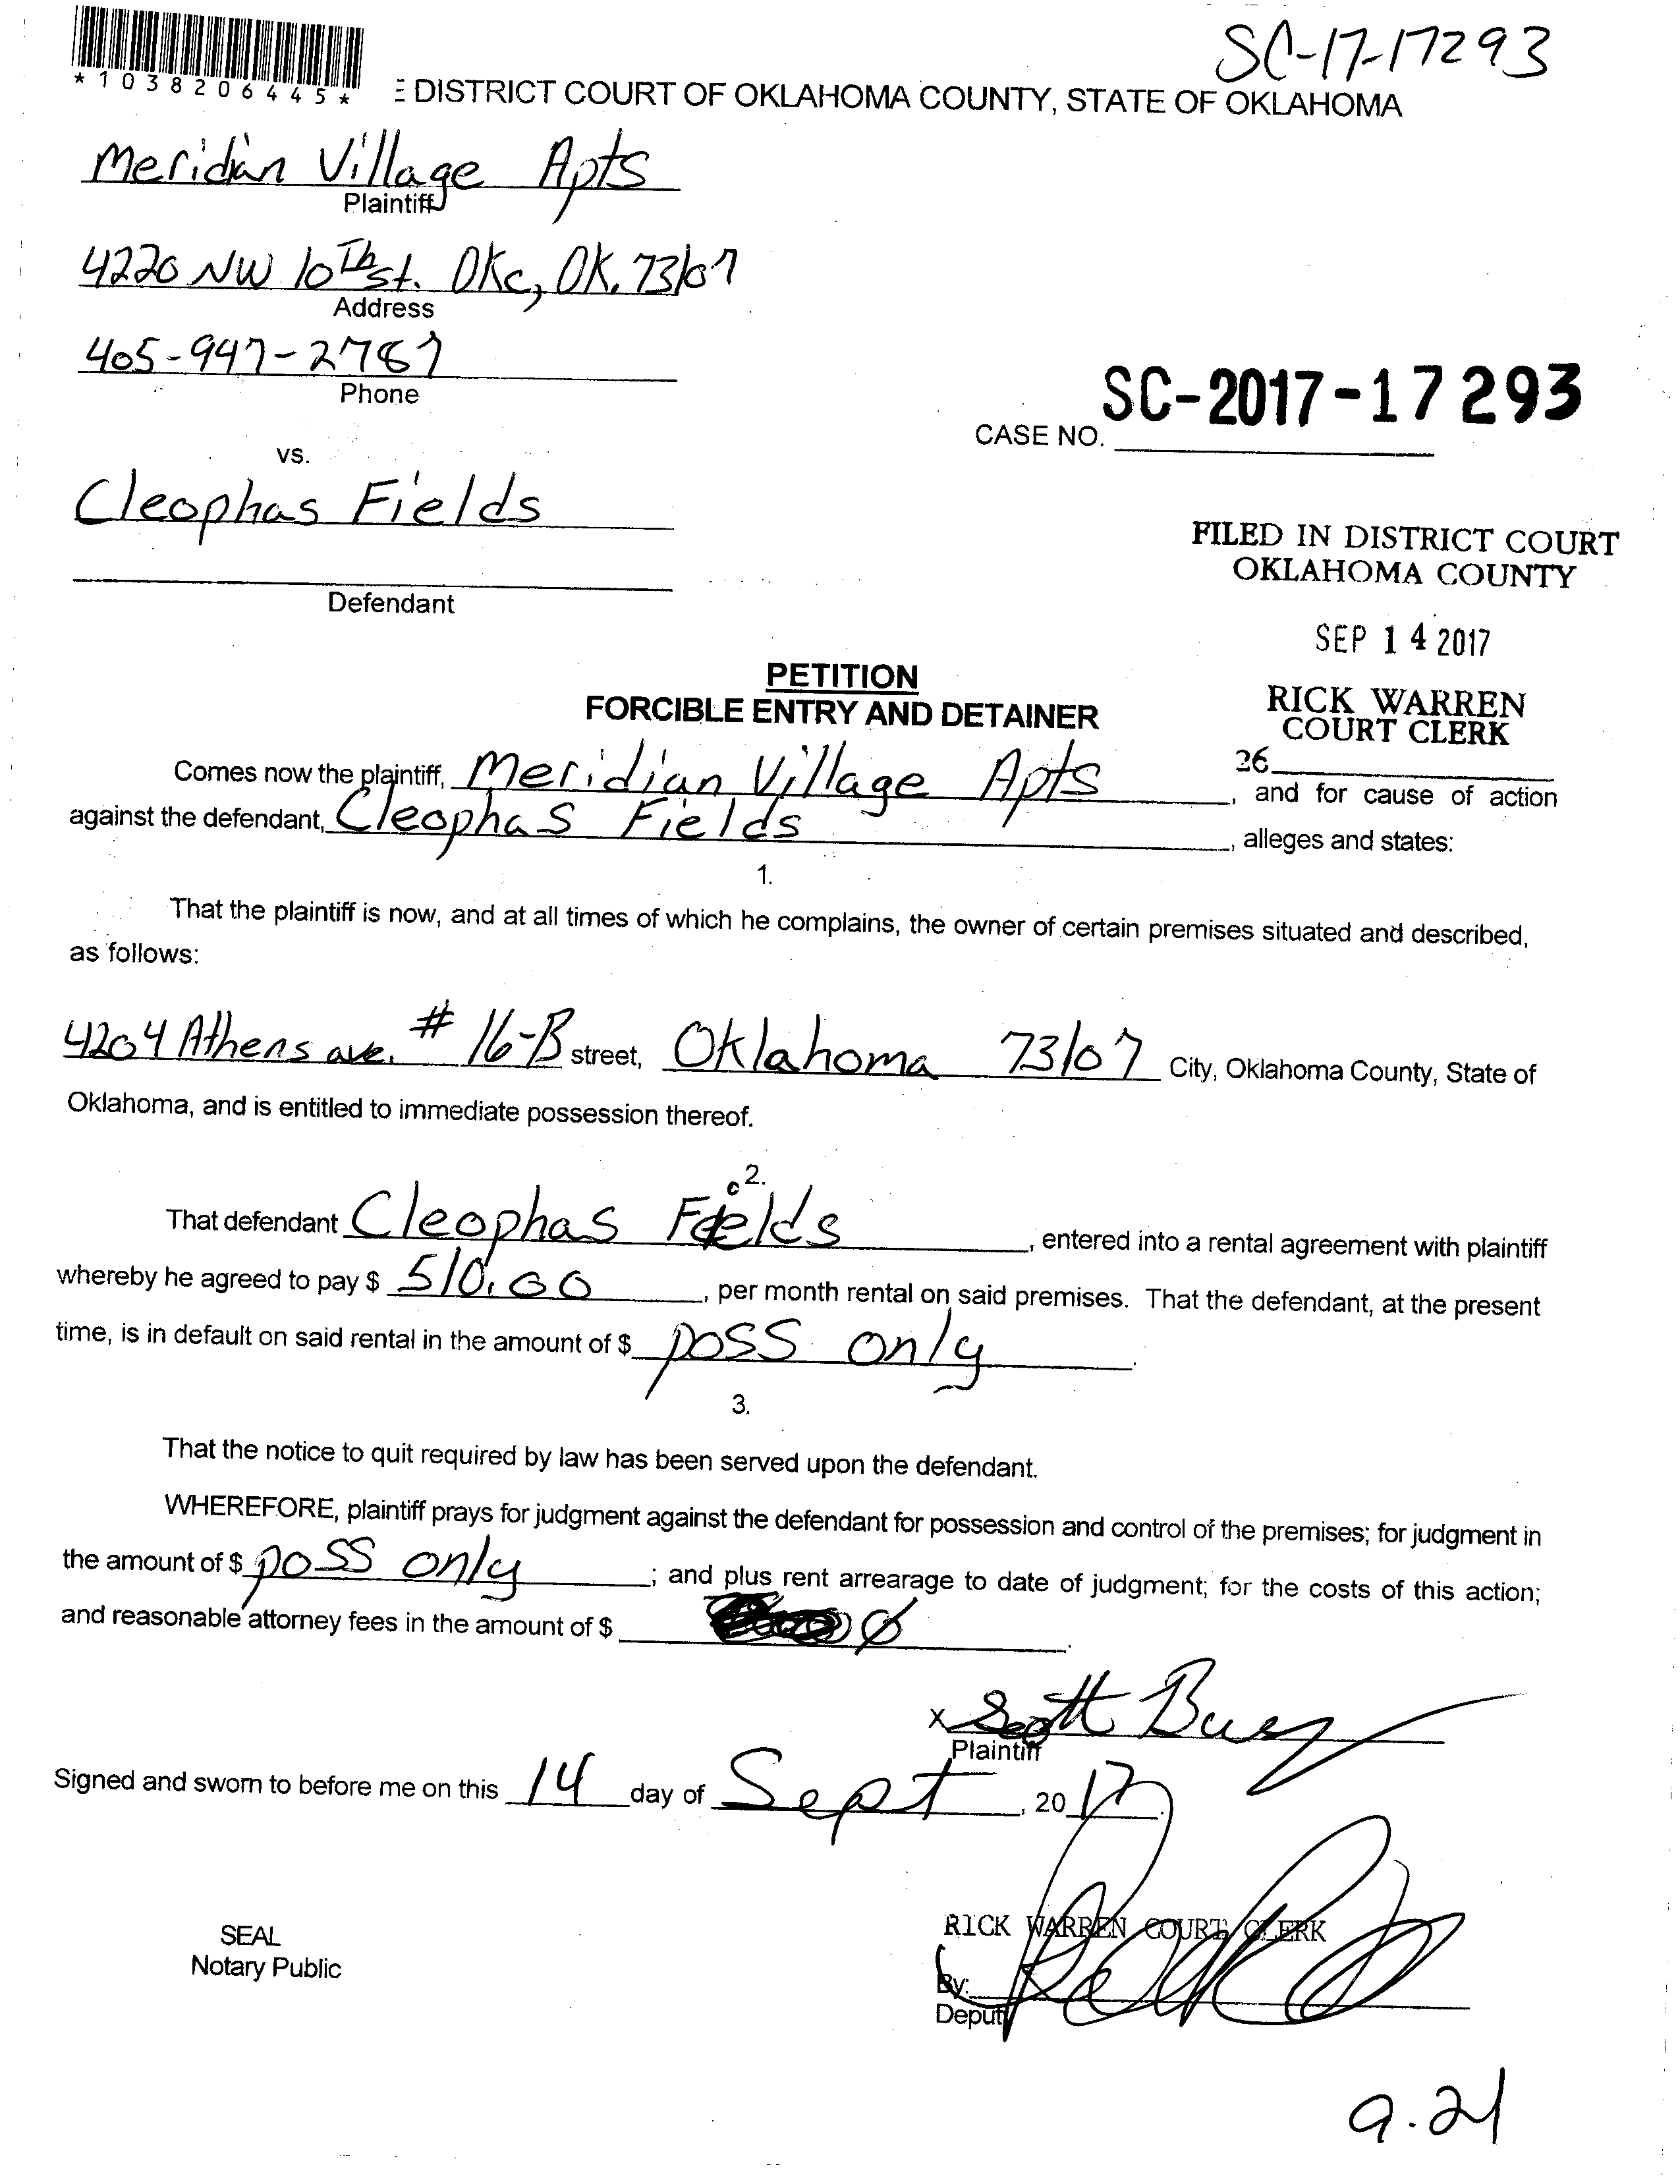 SC-17-17293
*1038206445*
E DISTRICT COURT OF OKLAHOMA COUNTY, STATE OF OKLAHOMA
Meridian Village Apts
Plaintiff
4220 NW 10th st. OKc, OK. 73107
Address
405-947-2787
Phone
SC-2017-17293
CASE NO.
vs.
Cleophas Fields
Defendant
FILED IN DISTRICT COURT
OKLAHOMA COUNTY
SEP 14 2017
RICK WARREN
COURT CLERK
26
PETITION
FORCIBLE ENTRY AND DETAINER
Comes now the plaintiff, Meridian Village Apts, and for cause of action
against the defendant, Cleophas Fields, alleges and states:
1.
That the plaintiff is now, and at all times of which he complains, the owner of certain premises situated and described,
as follows:
4204 Athens ave. # 16-B street, Oklahoma 73107 City, Oklahoma County, State of
Oklahoma, and is entitled to immediate possession thereof.
2.
That defendant Cleophas Fields, entered into a rental agreement with plaintiff
whereby he agreed to pay $ 510.00, per month rental on said premises. That the defendant, at the present
time, is in default on said rental in the amount of $ poss only.
3.
That the notice to quit required by law has been served upon the defendant.
WHEREFORE, plaintiff prays for judgment against the defendant for possession and control of the premises; for judgment in
the amount of $ poss only; and plus rent arrearage to date of judgment; for the costs of this action;
and reasonable attorney fees in the amount of $ Ø.
X Scott
Plaintiff
Signed and sworn to before me on this 14 day of Sept, 2017.
SEAL
Notary Public
RICK WARREN COURT CLERK
By:
Deputy
9.21